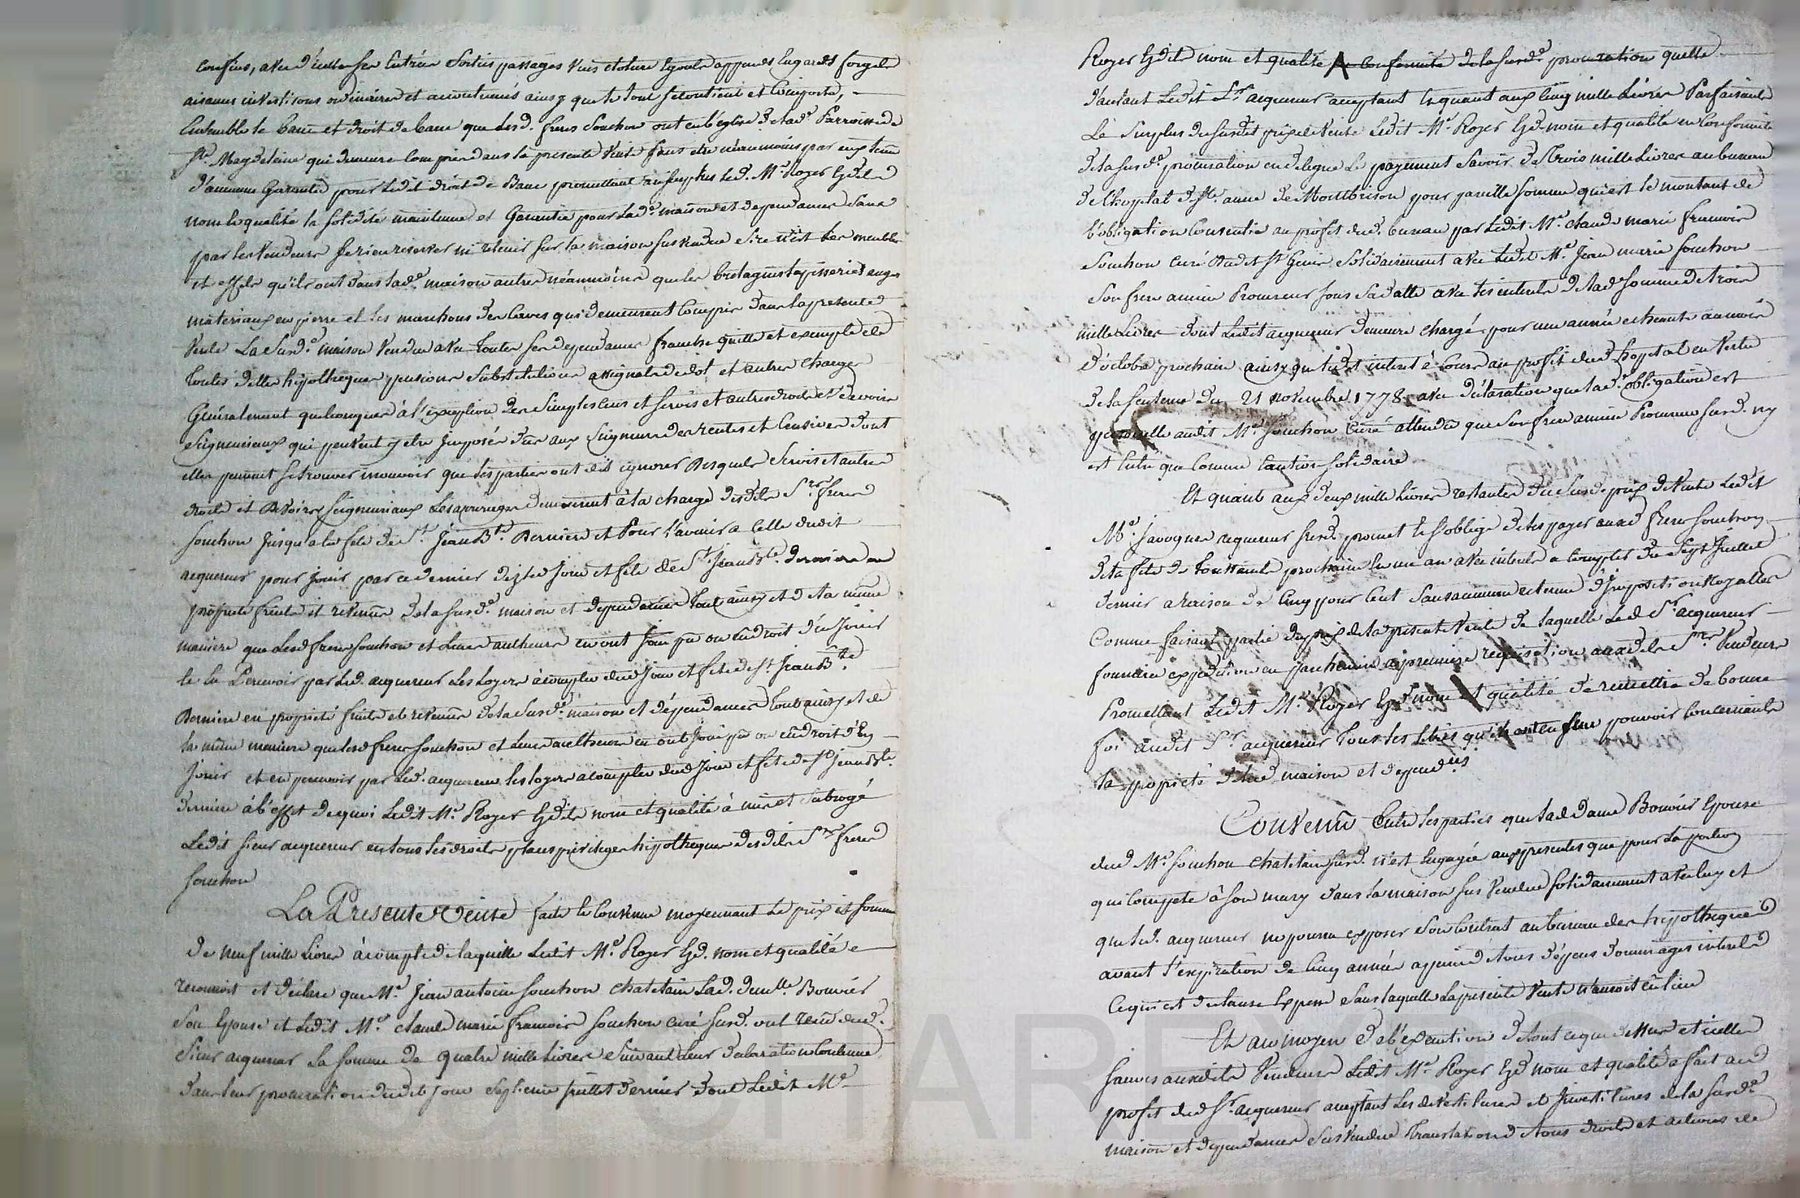 confins, avec d'icelle ses entrées sorties passages vues
aisances
Ensemble le banc et droit de banc que lesd. freres Souchon ont en l'eglise de lad.e Parroisse de
Ste Magdeleine qui demeure compris dans la presente vente sans etre néanmoins
d'aucune Garentie pour ledit droit de Banc promettant au surplus led. Me Royer Esd.
nom & qualité la solidité maintenue et Garentie pour lad.e maison et dependances sans
par les vendeurs se rien reserver ni retenir sur la maison susvendue si ce n'est les meubles
et effets qu'ils ont dans lad.e maison autres néanmoins que les
materiaux en pierre et les marchons des caves qui demeurent compris dans la presente
vente La susd.e maison vendue avec toutes ses dependances franche quitte et exempte de
toutes dettes hypotheques pensions substitutions assignats de dot et autres charges
Généralement quelconques à l'exception des simples cens et servis et autres droits et devoirs
seigneuriaux qui peuvent y etre imposés dus aux seigneurs des rentes et censives dont
elles peuvent se trouver mouvoir que les parties ont dit ignorer desquels servis et autres
droits et devoirs seigneuriaux les arrerages demeurent à la charge desdits Srs freres
Souchon jusqu'a la fete de St Jean Bte derniere et pour l'avenir a celle dudit
acquereur pour jouir par ce dernier dez led. jour et fete de St Jean Bte derniere en
proprieté fruits et revenus de la susd.e maison et dependances tout ainsy et de la meme
maniere que lesd. freres Souchon et leurs autheurs en ont joui pu ou eu droit d'en jouir
et en percevoir par led. acquereur les loyers acompter dud. jour et fete de St Jean Bte
derniere en proprieté fruits et revenus de la susd.e maison et dépendances tout ainsy et de
la meme maniere que lesd. freres Souchon et leurs autheurs en ont joui pu ou eu droit d'en
jouir et en percevoir par led. acquereur les loyers acompter dud. jour et fete de St Jean Bte
derniere à l'effet de quoi ledit Me Royer Esdits nom et qualité à mis et subrogé
ledit sieur acquereur en tous les droits places privileges hypotheques desdits Srs freres
Souchon
La Presente Vente faite & convenue moyennant le prix et somme
de neuf mille livres àcompte de laquelle ledit Me Royer Esd. nom et qualité a
reconnoit et déclare que Me Jean antoine Souchon chatelain lad. demlle Bouvier
son Epouse et ledit Me claude marie francois Souchon curé susd. ont recu dud.
sieur acquereur la somme de quatre mille livres suivant leur declaration contenue
dans leur procuration dudit jour juillet dernier dont ledit Me
Royer Esdits nom et qualité en conformité de la susd.e procuration quitte
d'autant ledit Sr acquereur acceptant & quant aux cinq mille livres Parfaisants
Le surplus du susdit prix de vente ledit Me Royer Esd. nom et qualité en conformité
de la susd.e procuration en delegue le payement savoir de trois mille livres au bureau
de l'hopital de Ste anne de Montbrison pour pareille somme qui est le montant de
l'obligation consentie au profit dud. bureau par ledit Me claude marie francois
Souchon curé dudit St Genis solidairement avec ledit Me Jean marie Souchon
son frere ancien Procureur sous sa datte avec les interets de lad. somme de trois
mille livres dont ledit acquereur demeure chargé pour une année echeante au mois
d'octobre prochain au profit dud. hopital en vertu
de la sentence du 21 novembre 1778 avec déclaration que lad.e obligation est
personnelle audit Me Souchon Curé attendu que son frere ancien Procureur susd. n'y
est entré que comme caution solidaire
Et quant aux deux mille livres restantes du susd. prix de vente ledit
Me Javogues acquereur susd. promet & s'oblige de les payer auxd. freres Souchon
de la fete de Toussaint prochaine en un an avec interets a compter du sept juillet
dernier a raison de cinq pour cent sans aucune retenue d'impositions Royalles
Comme faisant partie du prix de la presente vente de laquelle led. Sr acquereur
fournira expedition en parchemin a premiere requisition auxdits Srs Vendeurs
Promettant ledit Me Royer Esd. nom et qualité de remettre de bonne
foi audit Sr acquereur tous les titres qu'ils ont en leur pouvoir concernants
la proprieté de lad. maison et dependces
Convenu Entre les parties que lad. Dame Bouvier Epouse
dud. Me Souchon chatelain susd. n'est engagée aux presentes que pour la portion
qui compete à son mary dans la maison sus vendue solidairement avec luy et
que led. acquereur ne pourra exposer son contrat au bureau des hypotheques
avant l'expiration de cinq années a peine de tous dépens dommages interets
Ce qui est de clause expresse sans laquelle la presente vente n'auroit eu lieu
Et au moyen de l'execution de tout ce que dessus et icelles
sauves auxdits Vendeurs ledit Me Royer Esd. nom et qualité a fait au
profit dud. Sr acquereur acceptant les devestitures et investitures de la susd.e
maison et dependances susvendue translation de tous droits et actions de